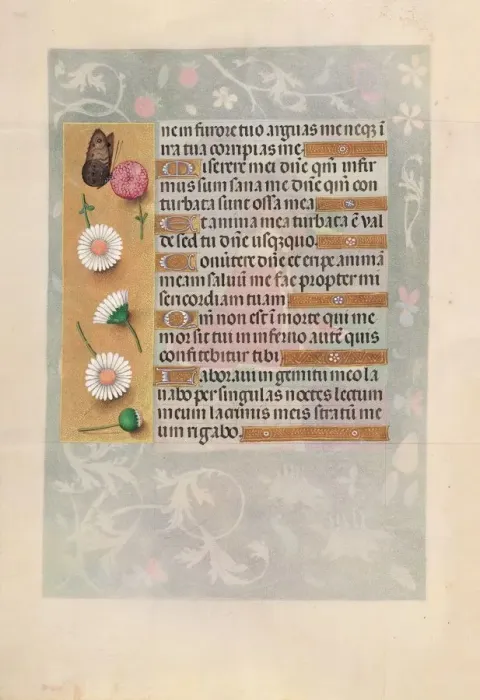 nem furore tuo arguas me neqȝ ī
ira tua corripias me.
Miserere mei dñe qm̄ infir
mus sum sana me dñe qm̄ con
turbata sunt ossa mea
Et anima mea turbata ē val
de sed tu dñe usqȝquo.
Conūtere dñe et eripe animā
meam saluū me fac propter mi
sericordiam tuam
Qm̄ non est ī morte qui me
mor sit tui in inferno autē quis
confitebitur tibi
Laboraui in gemitu meo la
uabo per singulas noctes lectum
meum lacrimis meis stratū me
um rigabo.